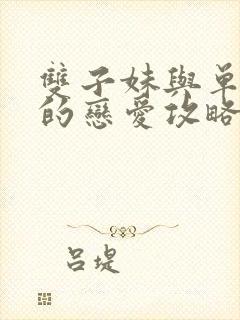 雙子妹與單
的戀愛攻略
呂堤